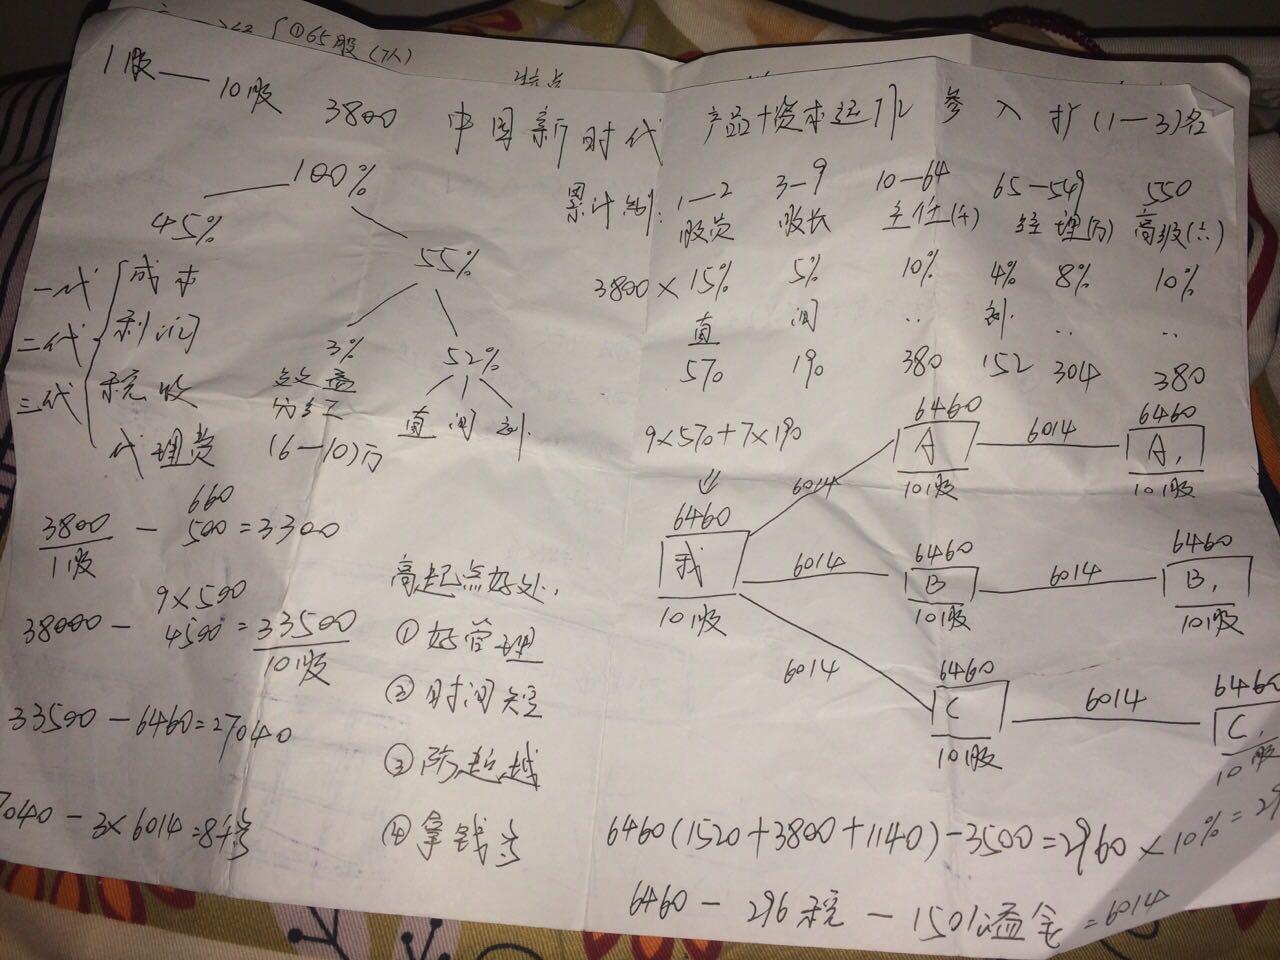 ①65股(7人)
1股—10股
3800
中国新时代
产品+资本运作
参入 扩(1—3)名
100%
45%
55%
一代
二代
三代
成本
利润
税收
代理费
3%
效益
分红
(6—10)万
52%
直 间 剑
累计制:
1—2 3—9 10—64 65—549 550
股员 股长 主任(千) 经理(万) 高级(六)
3800× 15% 5% 10% 4% 8% 10%
直 间 .. 剑. .. ..
570 190 380 152 304 380
9×570+7×190
6460
我
10股
6014
6460
A
10股
6014
6460
A₁
10股
6014
6460
B
10股
6014
6460
B₁
10股
6014
6460
C
10股
6014
6460
C₁
10股
660
3800
1股
- 500=3300
9×500
38000- 4500= 33500
10股
33500-6460=27040
7040-3×6014=8千多
高起点好处.
①好管理
②时间短
③防超越
④拿钱多
6460(1520+3800+1140)-3500=2960×10%=29
6460-296税-150溢金=6014